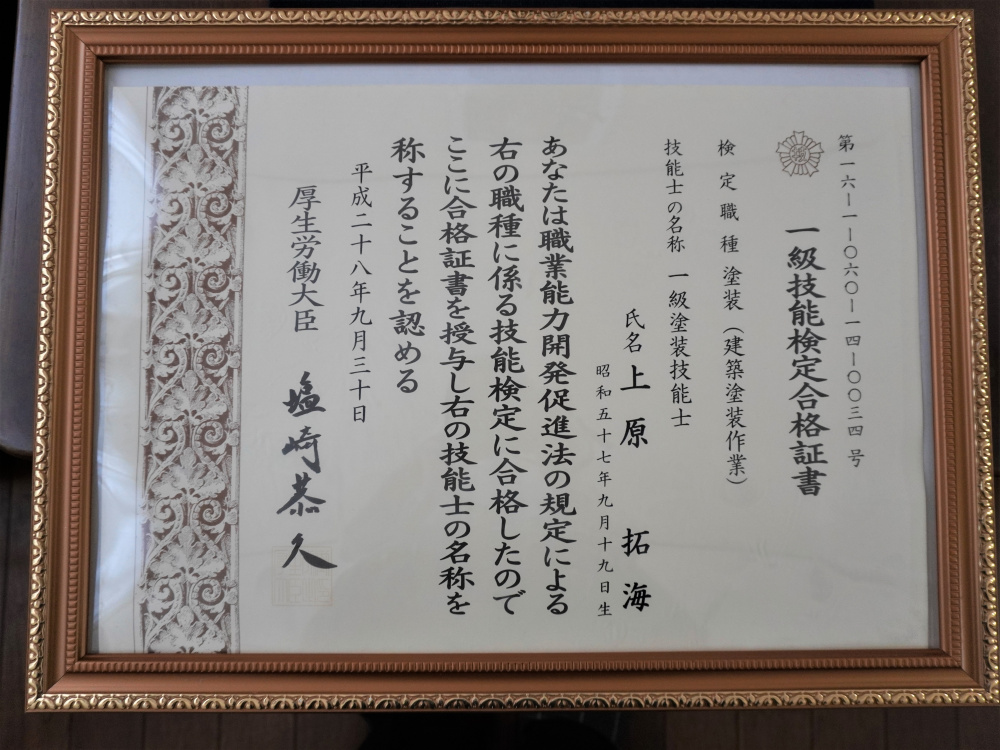 第一六ー一ー〇六〇ー一四ー〇〇三四号
一級技能検定合格証書
検定職種 塗装(建築塗装作業)
技能士の名称 一級塗装技能士
氏名 上原 拓海
昭和五十七年九月十九日生
あなたは職業能力開発促進法の規定による
右の職種に係る技能検定に合格したので
ここに合格証書を授与し右の技能士の名称を
称することを認める
平成二十八年九月三十日
厚生労働大臣 塩崎恭久